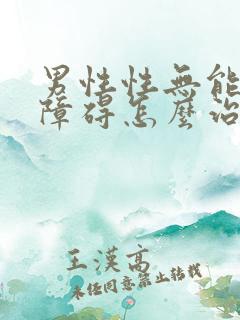 男性性無能
障碍怎麼治
王漢高
未经同意禁止转载